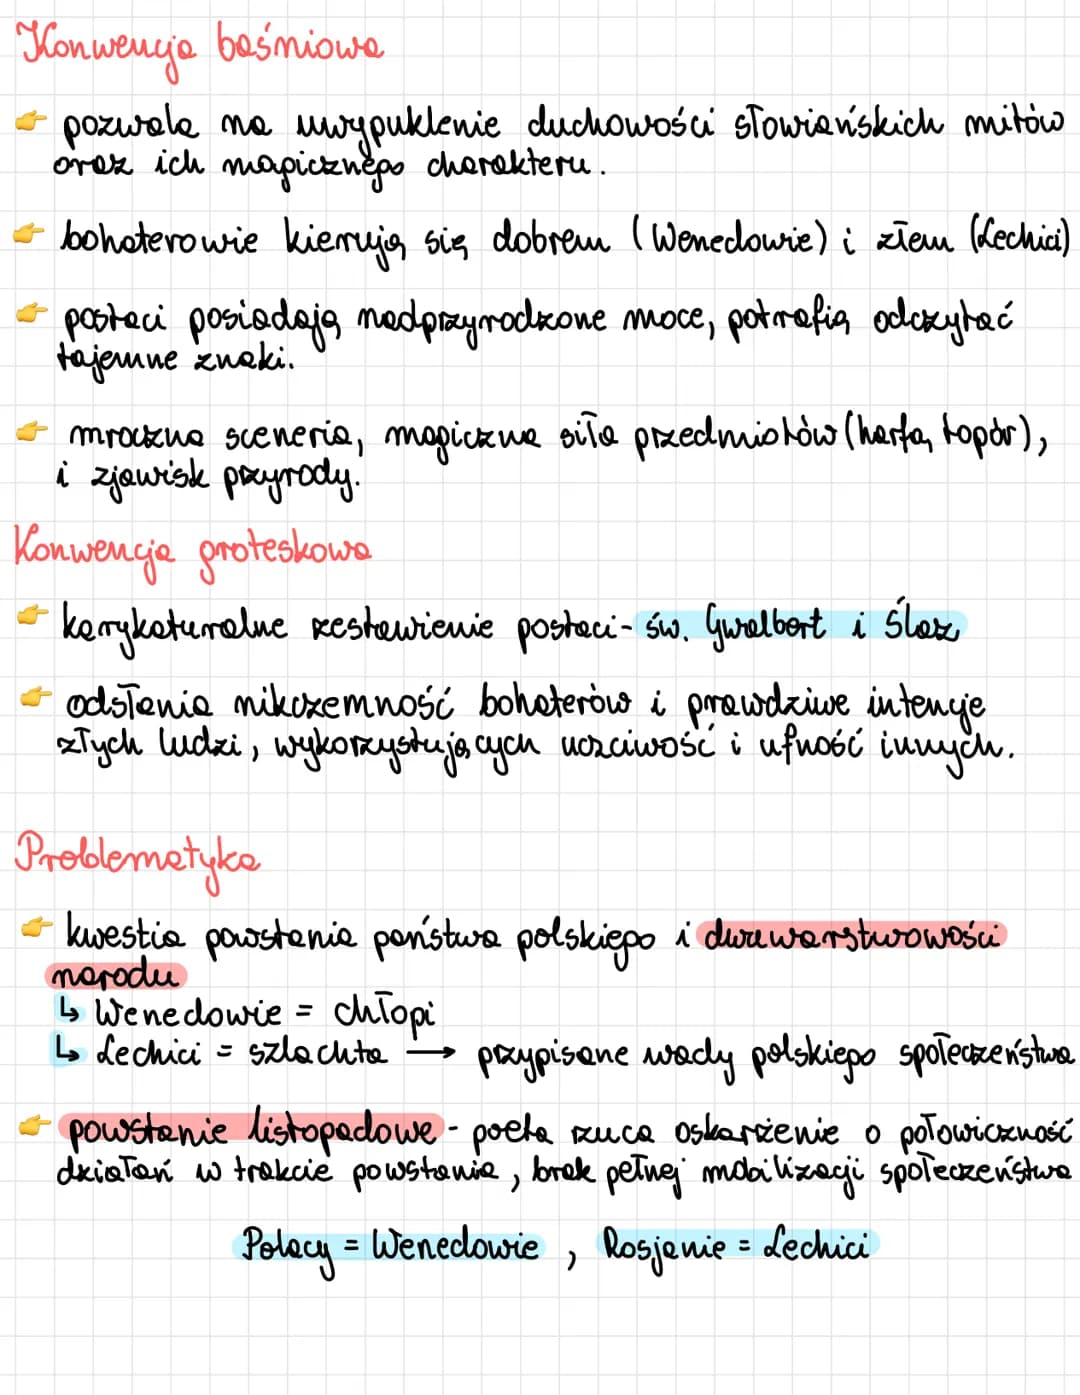 Konwencja baśniowa
👉 pozwala na uwypuklenie duchowości słowiańskich mitów
oraz ich magicznego charakteru.
👉 bohaterowie kierują się dobrem (Wenedowie) i złem (Lechici)
👉 postaci posiadają nadprzyrodzone moce, potrafią odczytać
tajemne znaki.
👉 mroczna sceneria, magiczna siła przedmiotów (harfa, topór),
i zjawisk przyrody.
Konwencja groteskowa
👉 karykaturalne zestawienie postaci - św. Gwalbert i Ślaz
👉 odsłania nikczemność bohaterów i prawdziwe intencje
złych ludzi, wykorzystujących uczciwość i ufność innych.
Problematyka
👉 kwestia powstania państwa polskiego i dwuwarstwowości
narodu
↳ Wenedowie = chłopi
↳ Lechici = szlachta → przypisane wady polskiego społeczeństwa
👉 powstanie listopadowe - poeta rzuca oskarżenie o połowiczność
działań w trakcie powstania, brak pełnej mobilizacji społeczeństwa
Polacy = Wenedowie, Rosjanie = Lechici